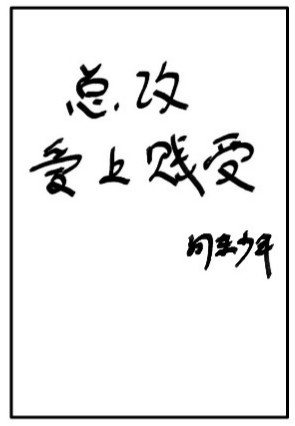 总.攻
爱上贱受
向东少年